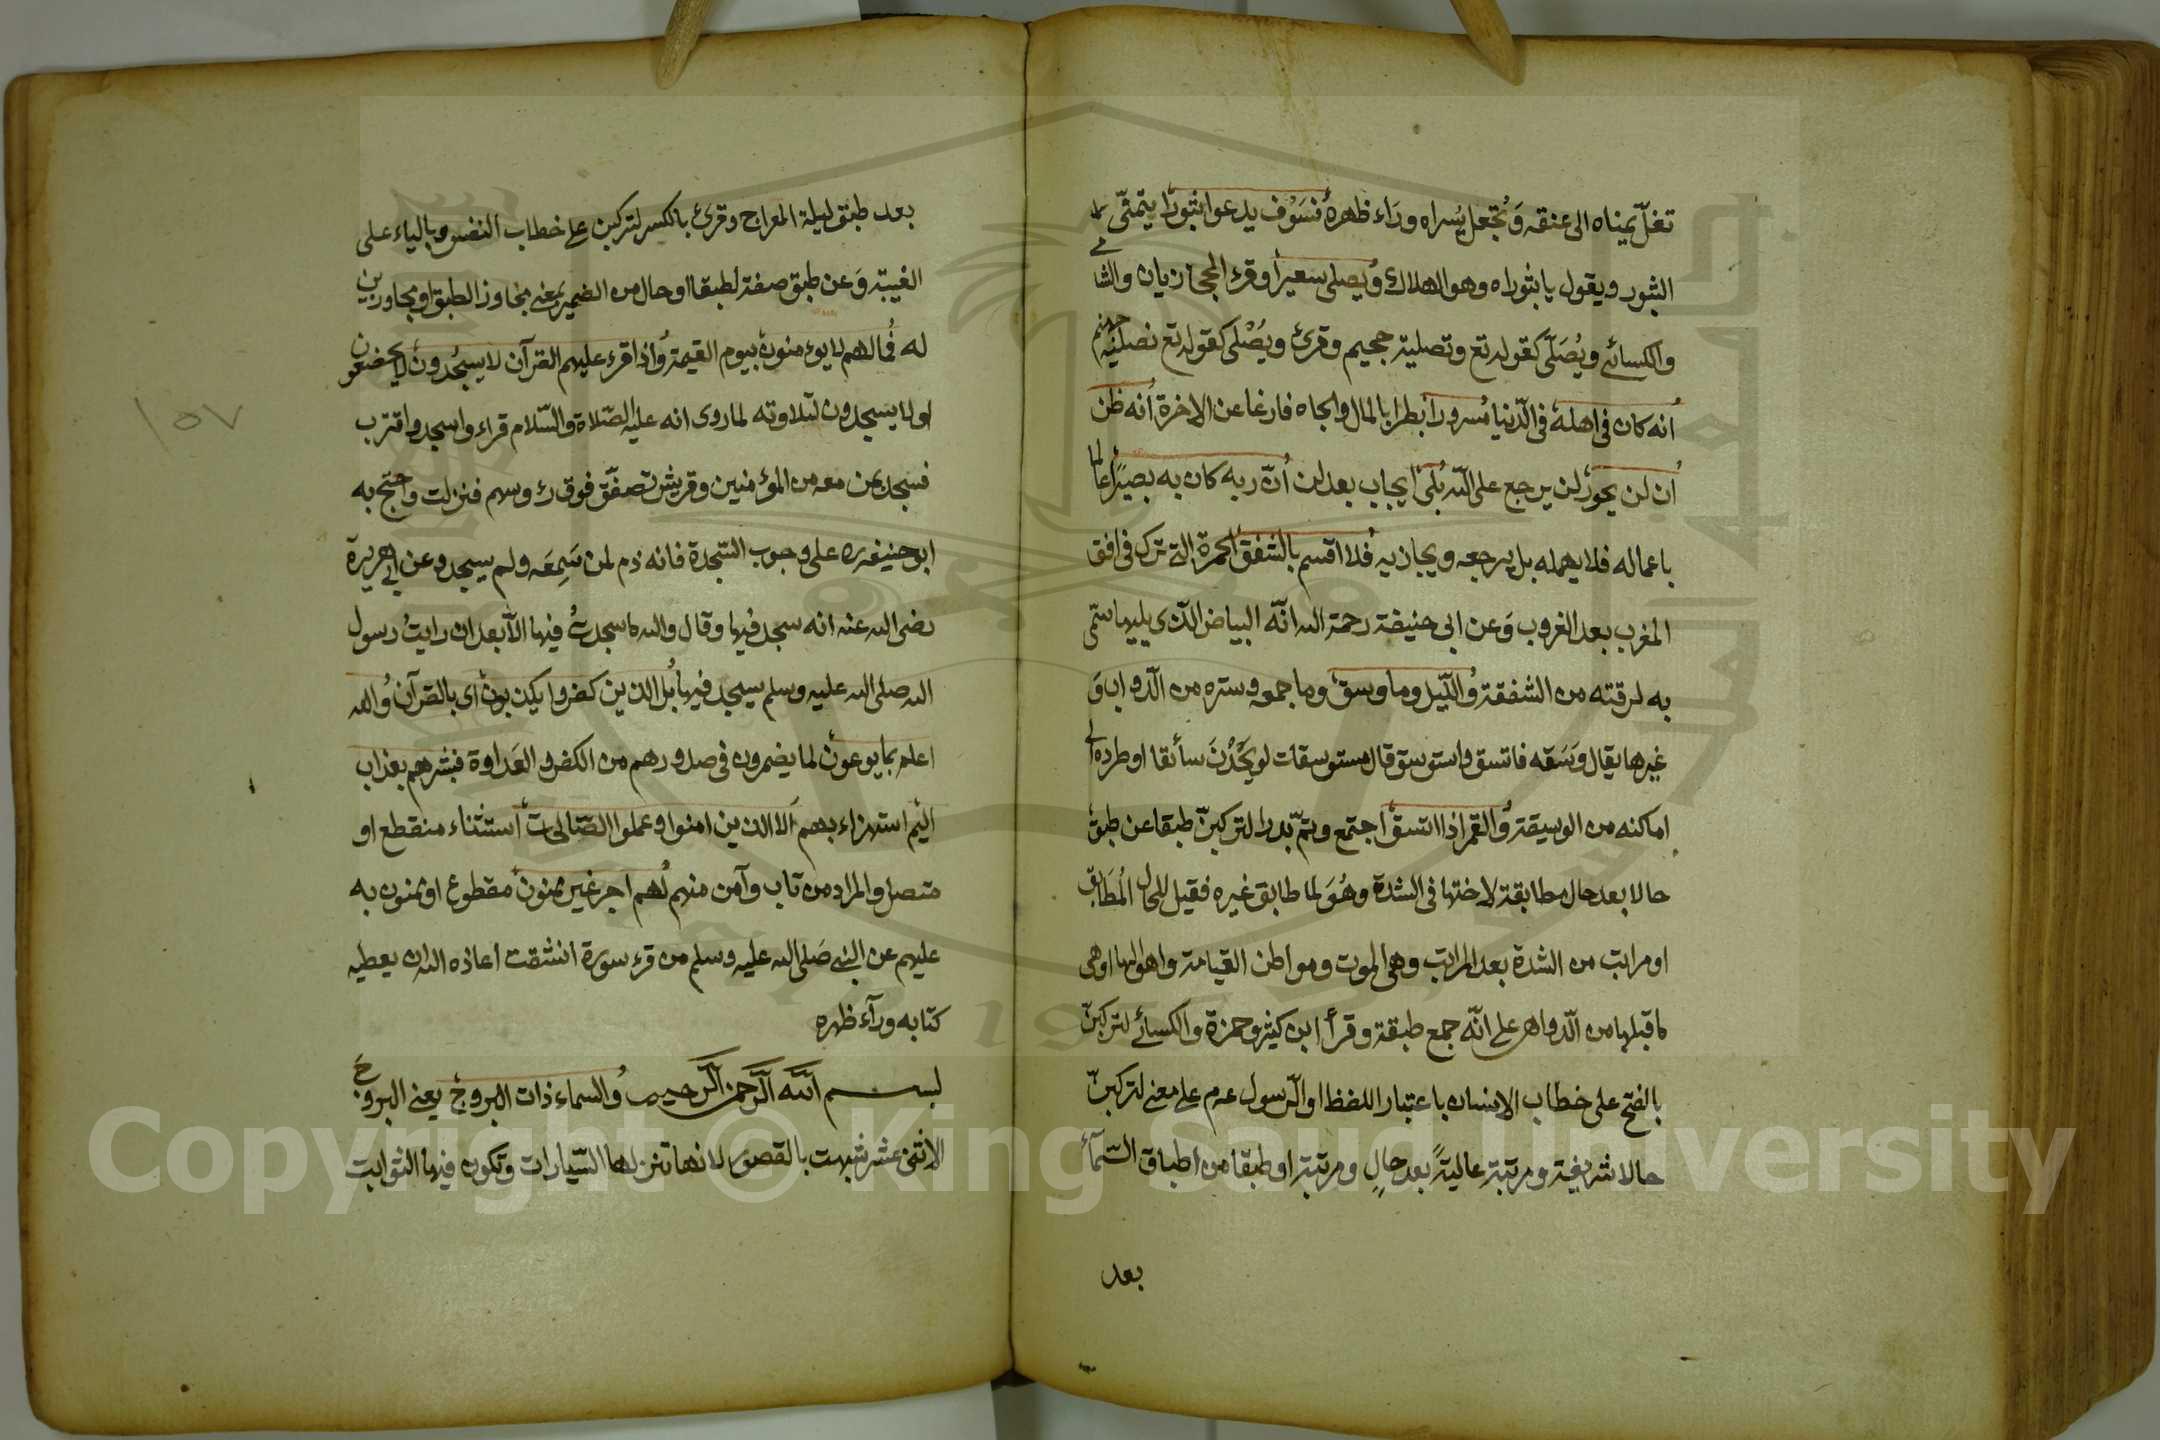 تغلّ يمناه الى عنقه وَتُجعل يُسراه ورَاء ظهره فسَوْف يدعوا ثبورًا يتمنّى
الثبور ويقول يا ثبوراه وهو الهلاك ويصلى سعيرا وقرء الحجازيان والشامي
والكسائي ويُصَلَّى كقوله تع وتصلية جحيم وقرئ ويُصْلى كقوله تع نصليه جهنم
انه كان في اهله في الدّنيا مسرورا بطرا بالمال والجاه فارغا عن الاخرة انه ظن
ان لن يحور لن يرجع على الله بلى ايجاب بعد لن انّ ربه كان به بصيرًا عالما
باعماله فلا يهمله بل يرجعه ويجازيه فلا اقسم بالشفق الحمرة التي ترى في افق
المغرب بعد الغروب وَعن ابى حنيفة رحمة الله انّه البياض الّذى يليها سمّى
به لرقته من الشفقة والّليل وما وسق وما جمعه وستره من الدّواب وَ
غيرها يقال وَسَقه فاتسق واستوسق قال مستوسقات لو يَجِدْنَ سائقا او طرده الى
اماكنه من الوسيقة والقمر اذا اتسق اجتمع وتمّ بدرا لتركبنّ طبقا عن طبق
حالا بعد حال مطابقة لاختها في الشدة وهُوَ لما طابق غيره فقيل للحال المُطَابق
او مراتب من الشدة بعد المراتب وهي الموت ومواطن القيامة واهوالها او هي
ما قبلها من الدّواهى على انّه جمع طبقة وقرأ ابن كثير وحمزة والكسائي لتركبنّ
بالفتح على خطاب الانسان باعتبار اللفظ او الرّسول عم على معنى لتركبنّ
حالا شريفة ومرتبة عاليةً بعد حالٍ ومرتبة او طبقا من اطباق السّمآء
بعد
بعد طبق ليلة المعراج وقرئ بالكسر لتركبن على خطاب النفس وبالياء على
الغيبة وَعن طبق صفة لطبقا او حال من الضمير بمعنى مجاوز الطبق او مجاوزين
له فما لهم لا يؤمنون بيوم القيمة واذا قرء عليهم القرآن لا يسجُدون لا يخضعون
او لا يسجدون لتلاوته لما روى انه عليه الصّلاة والسّلام قراء واسجد واقترب
فسجد بمن معه من المؤمنين وقريش تصفّق فوق رؤوسهم فنزلت واحتج به
ابو حنيفه ره على وجوب السّجدة فانه ذم لمن سَمِعَه ولم يسجد وعن ابي هريرة
رضى الله عنه انه سجد فيها وقال والله ما سجدت فيها الاّ بعد ان رايتُ رسول
الله صلى الله عليه وسلم يسجد فيها بل الذين كفروا يكذبون اى بالقرآن والله
اعلم بما يوعون لما يضمرون في صدورهم من الكفر والعَداوة فبشرهم بعذاب
اليم استهزاء بهم الا الذين امنوا وعملوا الصّالحات استثناء منقطع او
متصل والمراد من تاب وآمن منهم لهم اجر غير ممنون مقطوع او ممنون به
عليهم عن النبي صَلى الله عليه وسلم من قرء سورة انشقت اعاذه الله ان يعطيه
كتابه ورآء ظهره
بسم الله الرّحمن الرّحيم والسماء ذات البروج يعنى البروج
الاثنى عشر شبهت بالقصور لانها تنزلها السّيارات وتكون فيها الثوابت
١٥٧
Copyright © King Saud University